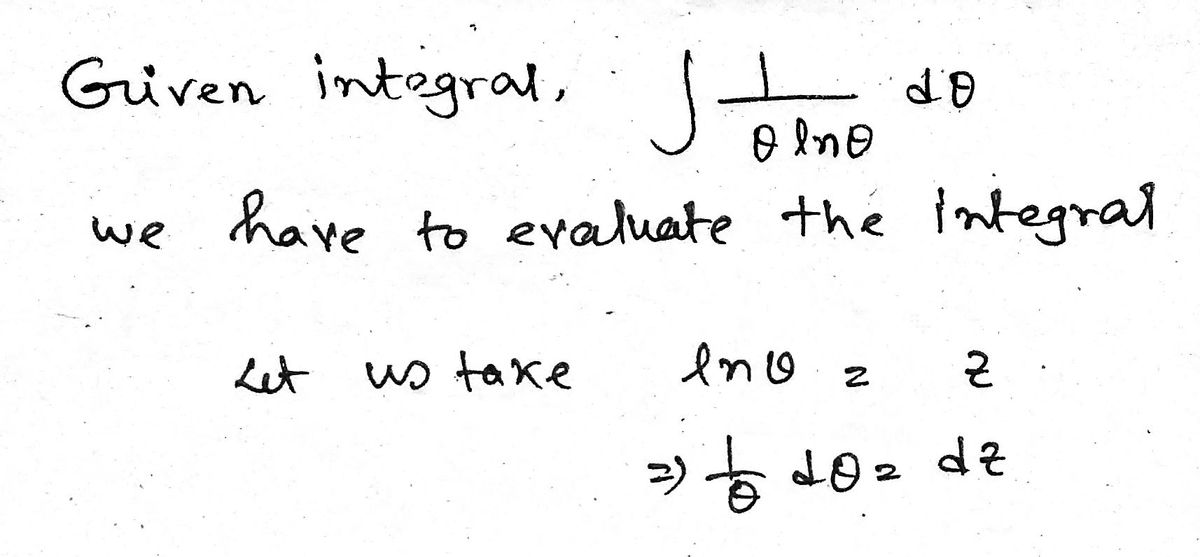 Given integral, ∫ 1/(θ lnθ) dθ
we have to evaluate the integral
Let us take lnθ = z
⇒ 1/θ dθ = dz